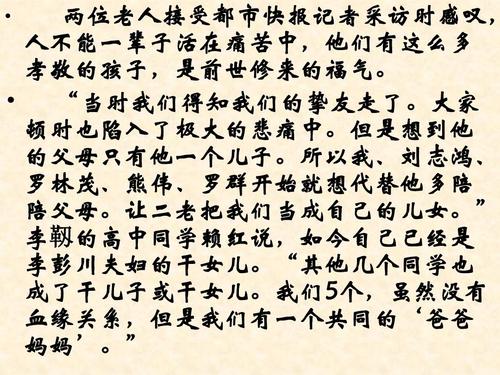 • 两位老人接受都市快报记者采访时感叹，
人不能一辈子活在痛苦中，他们有这么多
孝敬的孩子，是前世修来的福气。
• “当时我们得知我们的挚友走了。大家
顿时也陷入了极大的悲痛中。但是想到他
的父母只有他一个儿子。所以我、刘志鸿、
罗林茂、熊伟、罗群开始就想代替他多陪
陪父母。让二老把我们当成自己的儿女。”
李靱的高中同学赖红说，如今自己已经是
李彭川夫妇的干女儿。“其他几个同学也
成了干儿子或干女儿。我们5个，虽然没有
血缘关系，但是我们有一个共同的‘爸爸
妈妈’。”